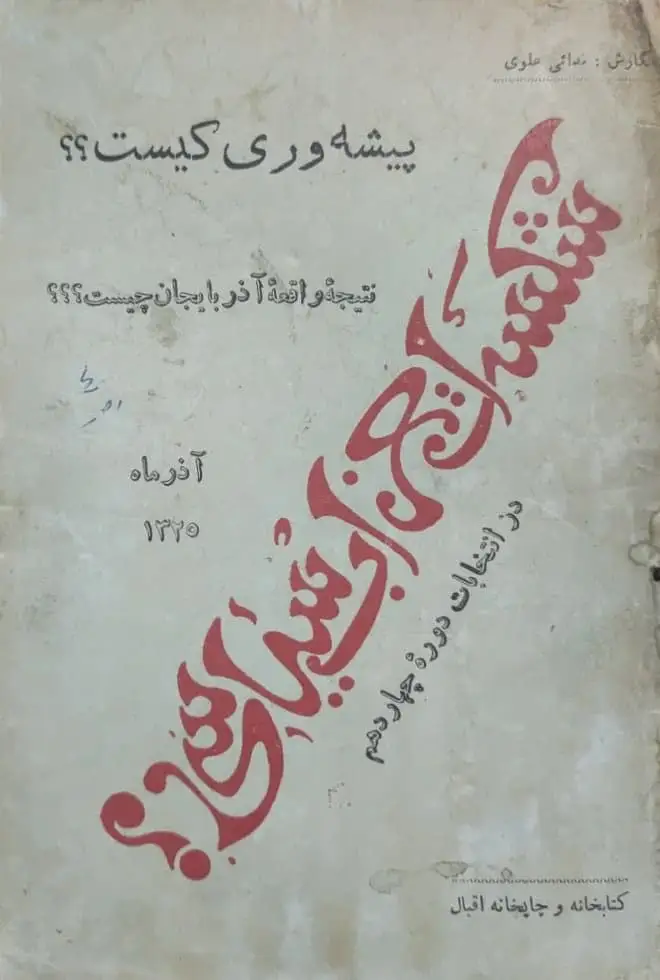 نگارش : فدائی علوی
پیشه‌وری کیست؟؟
نتیجهٔ واقعهٔ آذربایجان چیست؟؟؟
شکست احزاب سیاسی
در انتخابات دورهٔ چهاردهم
آذر ماه
۱۳۲۵
کتابخانه و چاپخانه اقبال